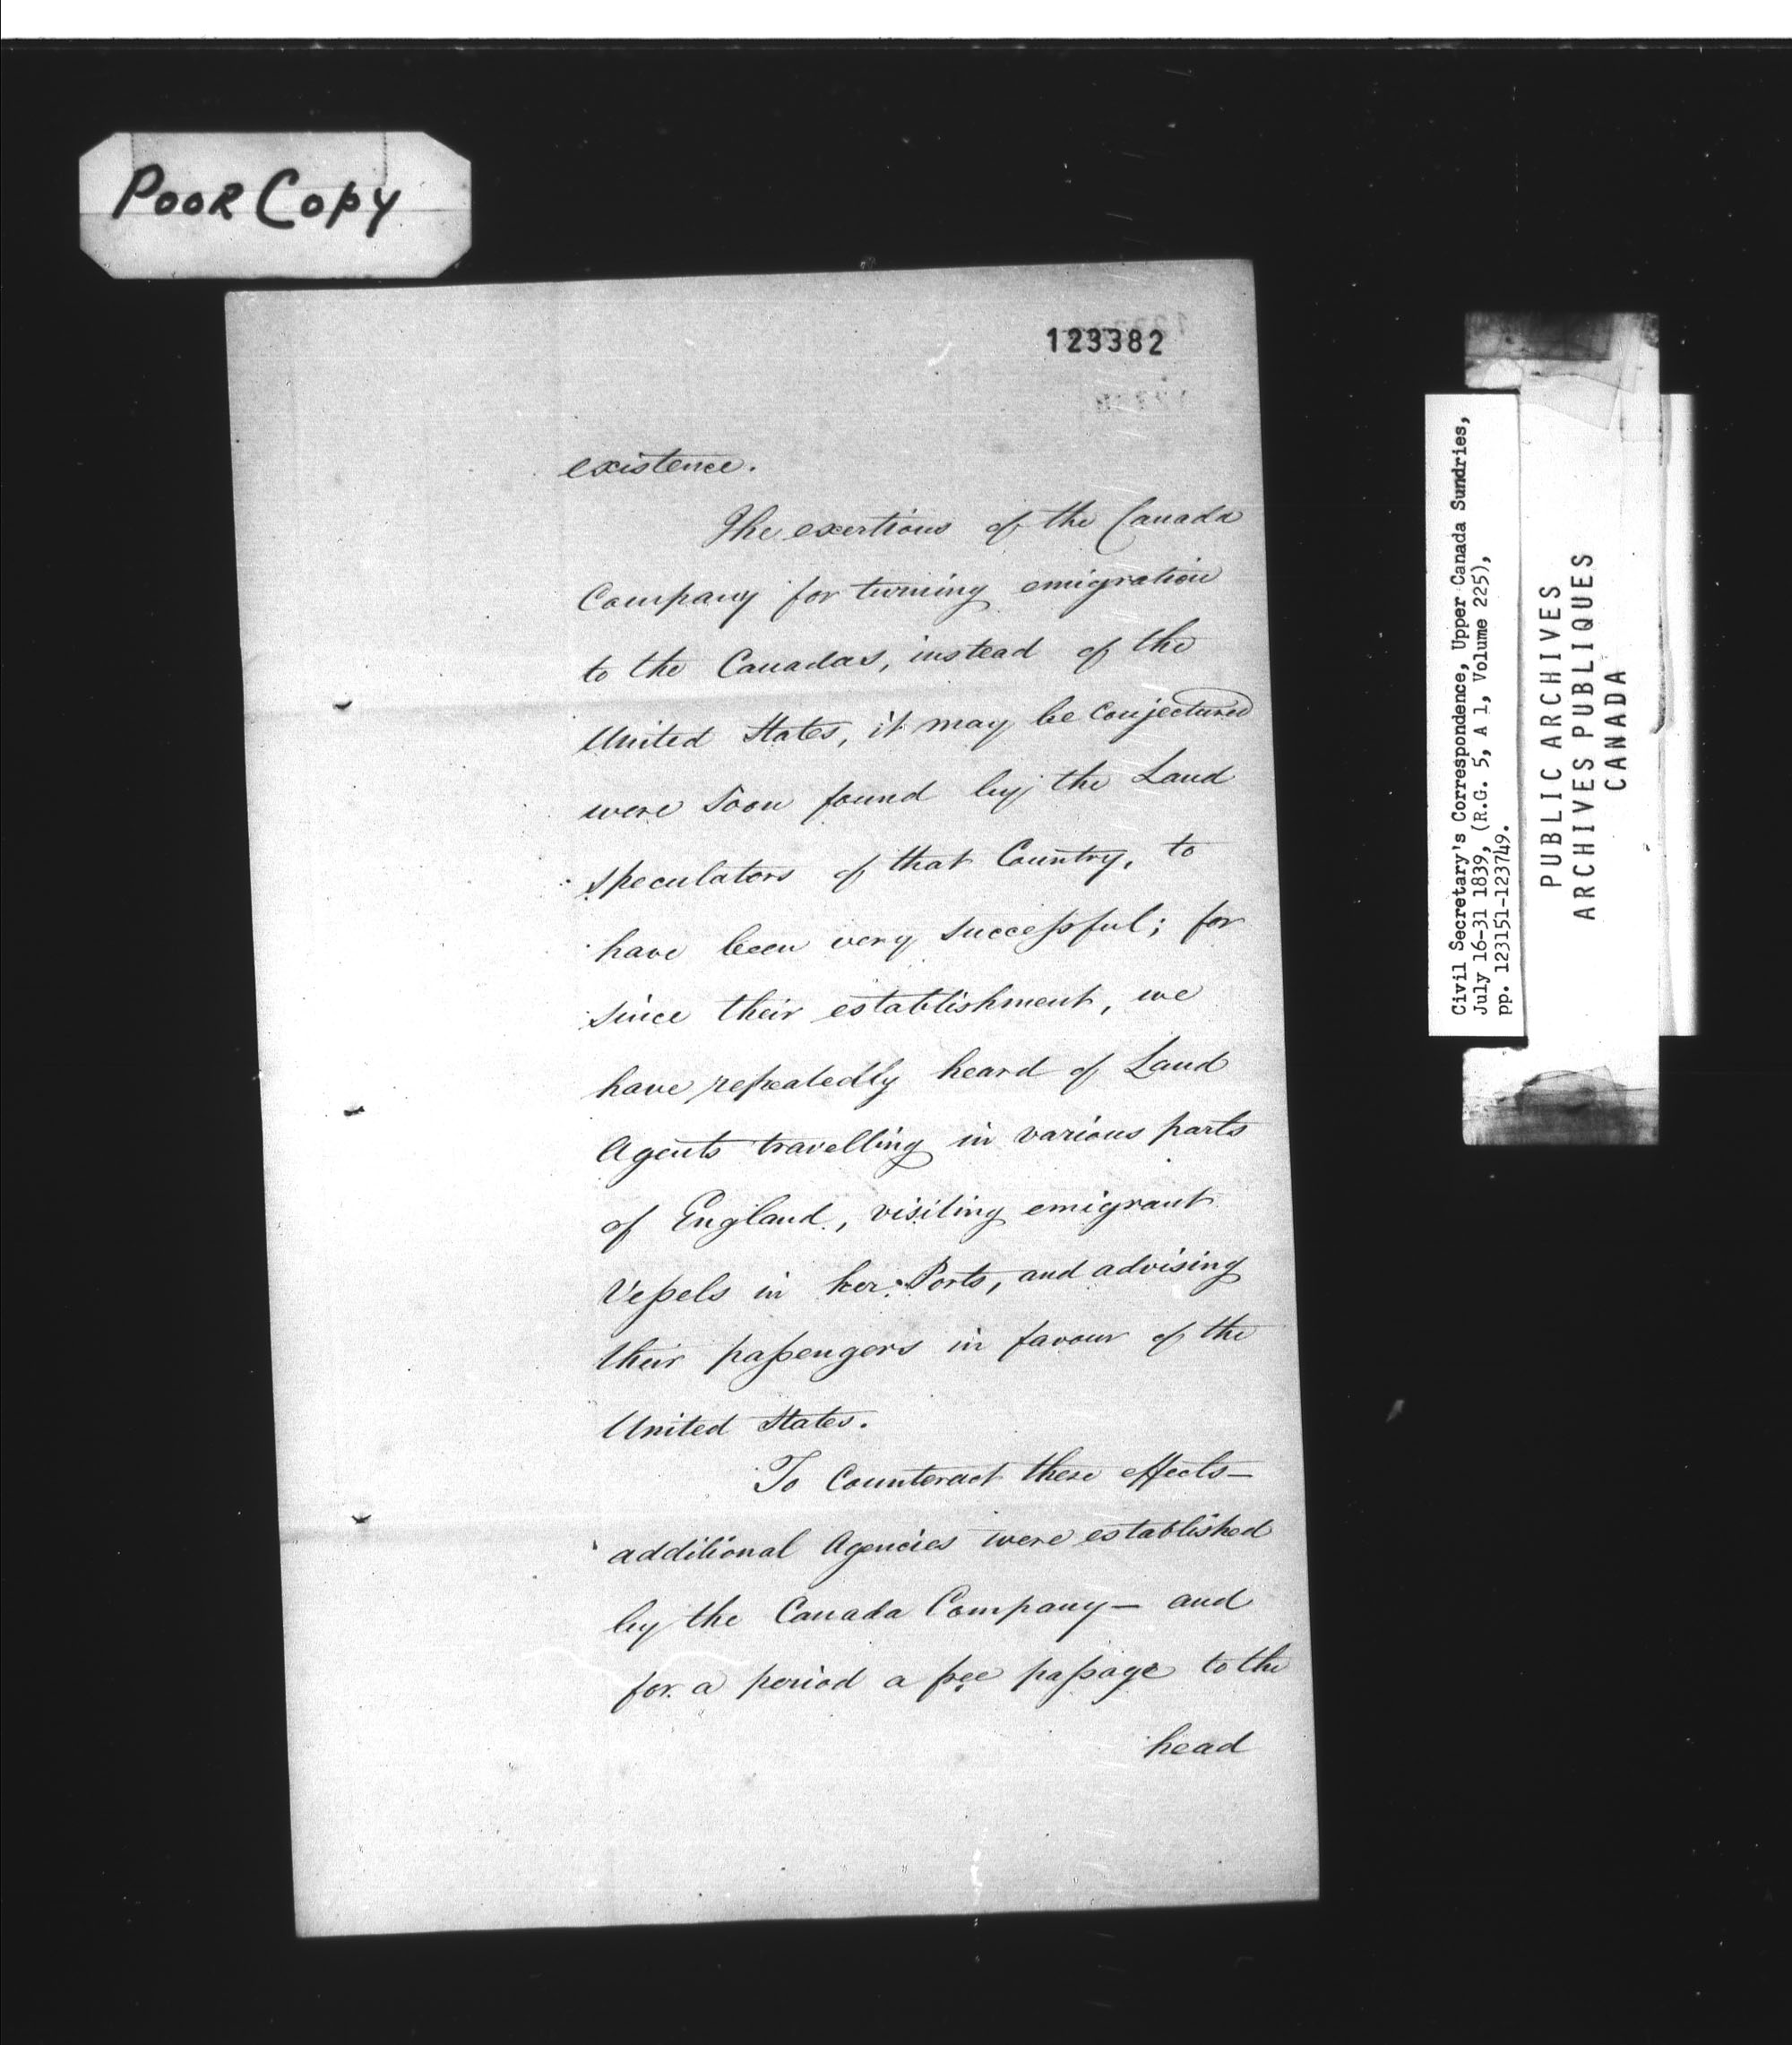 POOR COPY
123382
existence.
The exertions of the Canada
Company for turning emigration
to the Canadas, instead of the
United States, it may be conjectured
were soon found by the Land
speculators of that Country, to
have been very successful; for
since their establishment, we
have repeatedly heard of Land
Agents travelling in various parts
of England, visiting emigrant
Vessels in her Ports, and advising
their passengers in favour of the
United States.
To Counteract these effects—
additional Agencies were established
by the Canada Company— and
for a period a free passage to the
head
Civil Secretary's Correspondence, Upper Canada Sundries,
July 16-31 1839, (R.G. 5, A 1, Volume 225),
pp. 123151-123749.
PUBLIC ARCHIVES
ARCHIVES PUBLIQUES
CANADA